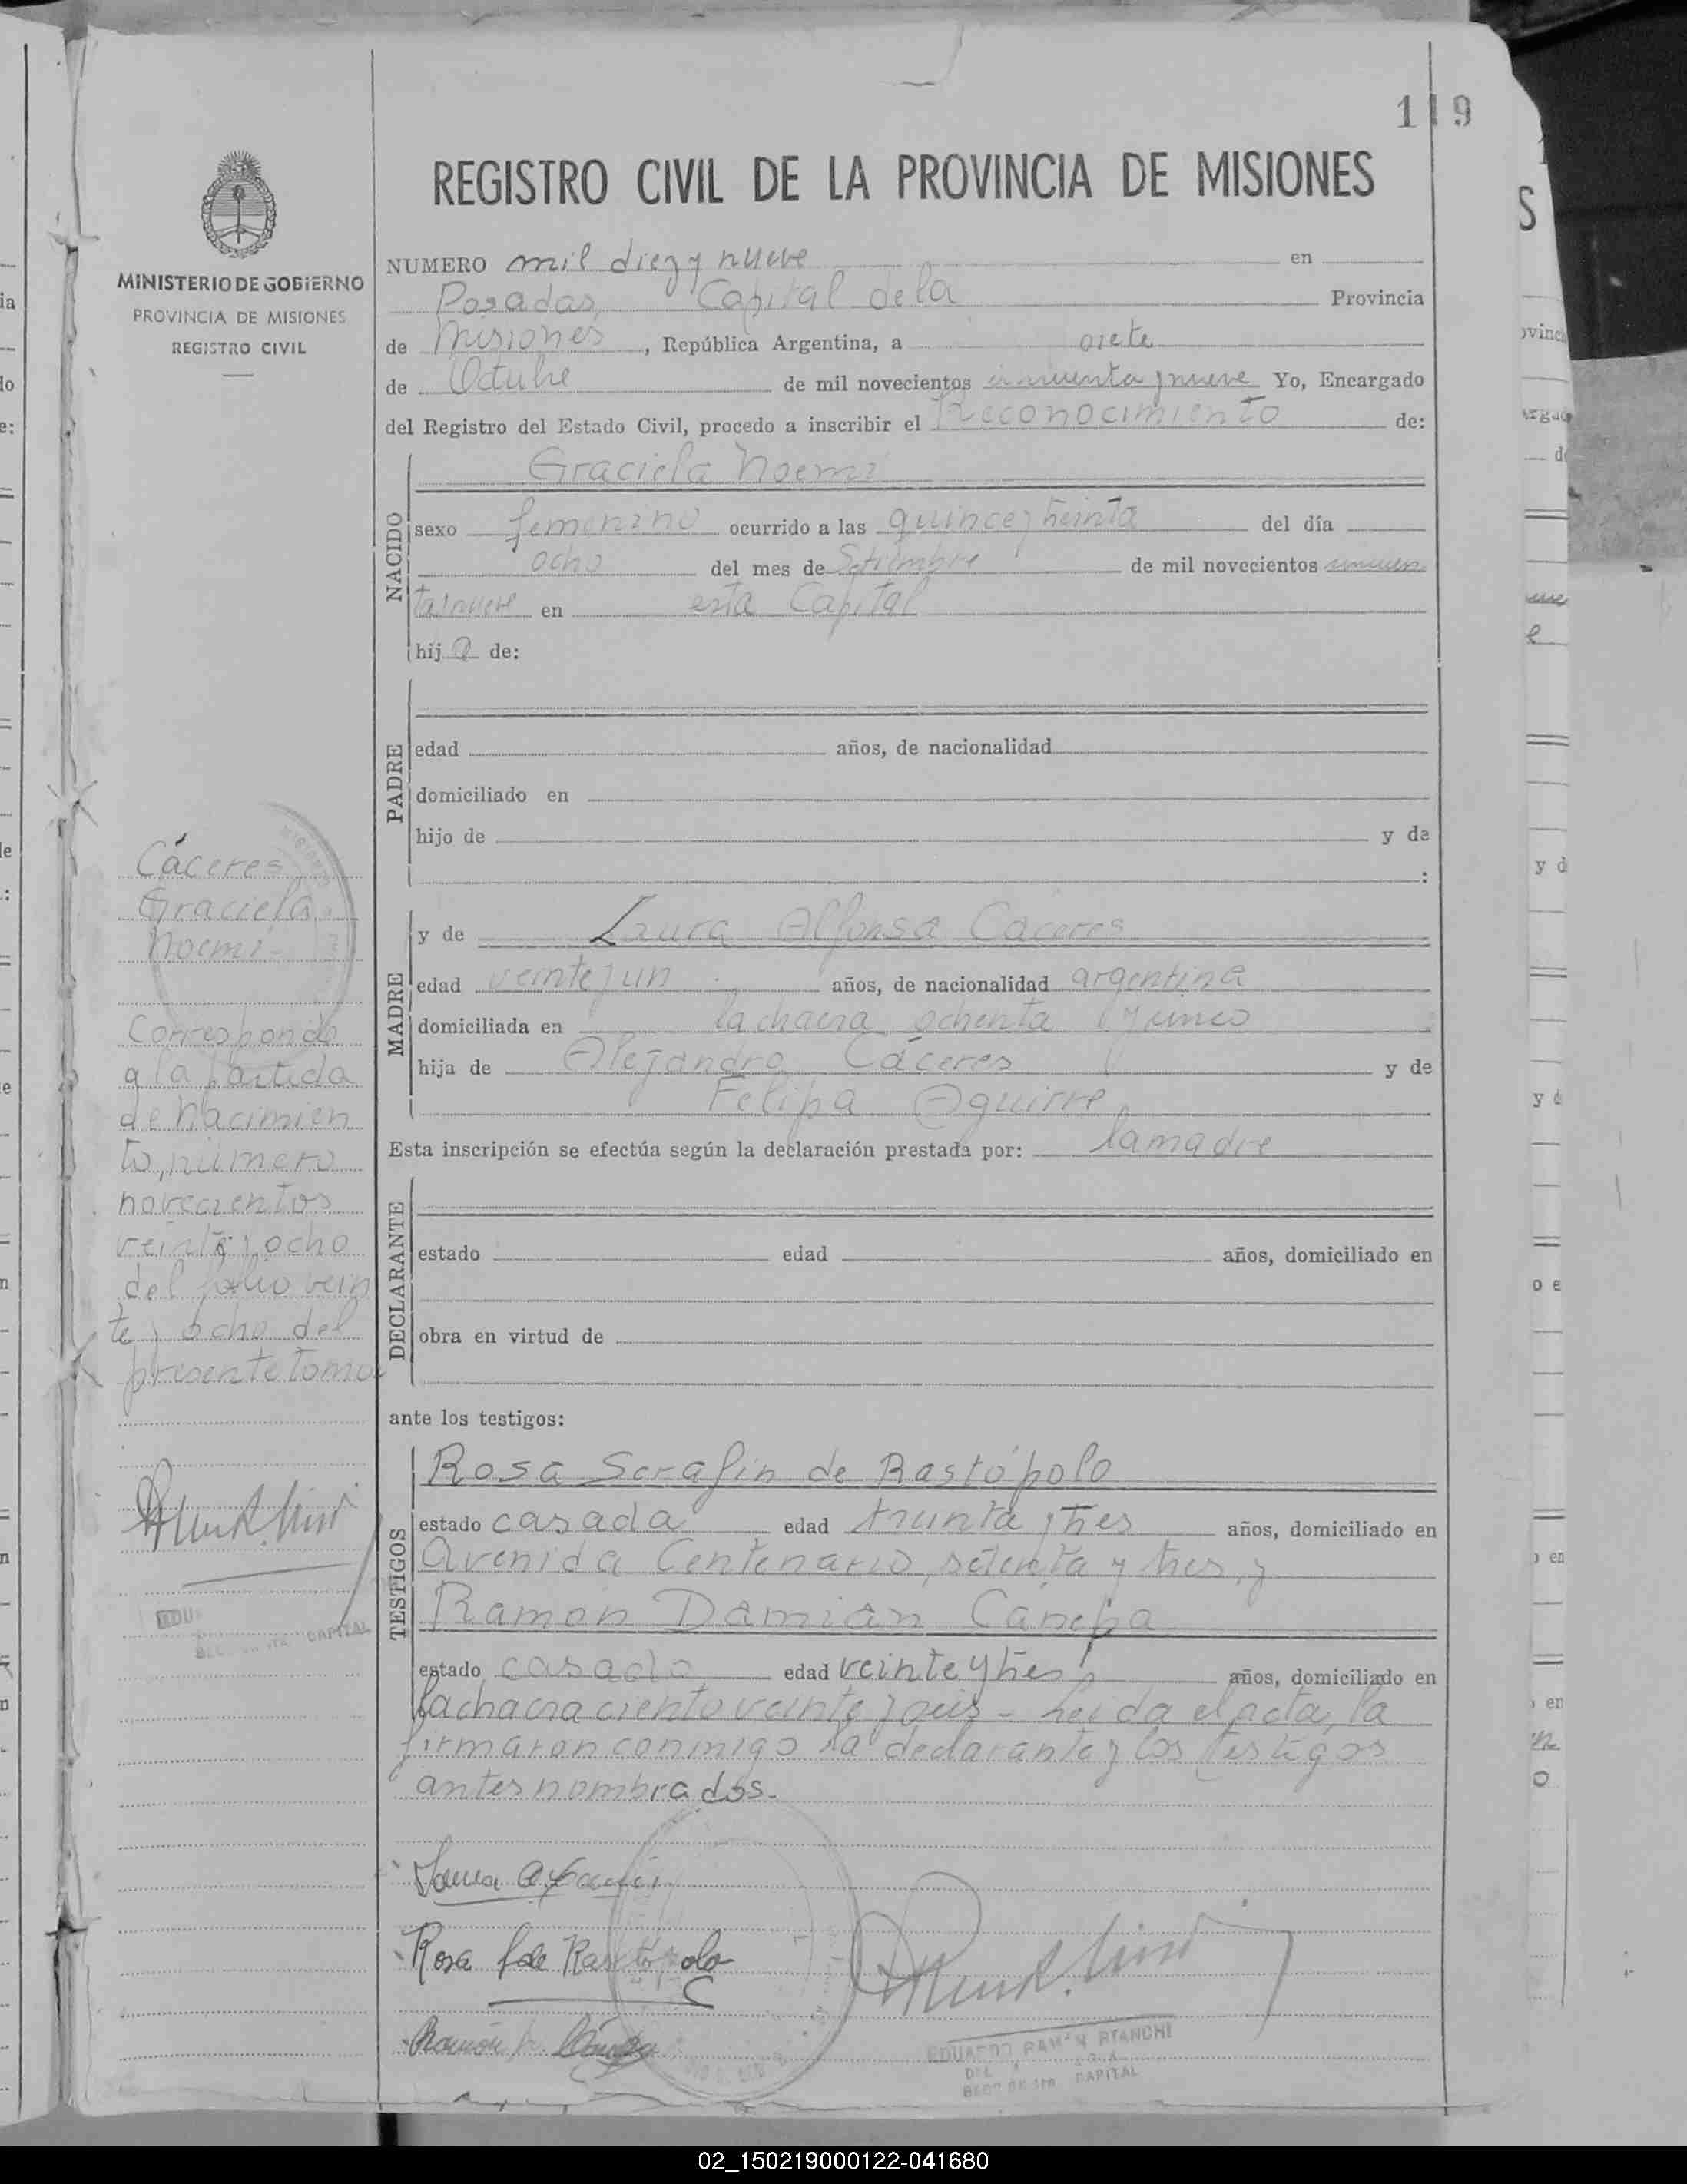 119
REGISTRO CIVIL DE LA PROVINCIA DE MISIONES
MINISTERIO DE GOBIERNO
PROVINCIA DE MISIONES
REGISTRO CIVIL
NUMERO mil diez y nueve en
Posadas, Capital de la Provincia
de Misiones, República Argentina, a siete
de Octubre de mil novecientos cincuenta y nueve Yo, Encargado
del Registro del Estado Civil, procedo a inscribir el Reconocimiento de:
Graciela Noemi
NACIDO
sexo femenino ocurrido a las quince y treinta del día
ocho del mes de Setiembre de mil novecientos cincuen
ta y nueve en esta Capital
hija de:
PADRE
edad años, de nacionalidad
domiciliado en
hijo de y de
:
Cáceres
Graciela
Noemi-
Corresponde
a la partida
de nacimien
to, número
novecientos
veinte y ocho
del folio vein
te y ocho del
presente tomo
MADRE
y de Laura Alfonsa Caceres
edad veinte y un años, de nacionalidad argentina
domiciliada en la chacra ochenta y cinco
hija de Alejandro Cáceres y de
Felipa Aguirre
Esta inscripción se efectúa según la declaración prestada por: la madre
DECLARANTE
estado edad años, domiciliado en
obra en virtud de
ante los testigos:
TESTIGOS
Rosa Serafin de Rastópolo
estado casada edad treinta y tres años, domiciliado en
Avenida Centenario, setenta y tres, y
Ramon Damián Canepa
estado casado edad veinte y tres años, domiciliado en
la chacra ciento veinte y seis - Leida el acta, la
firmaron conmigo la declarante y los testigos
antes nombrados.
Laura A.
Rosa S de Rastópolo
Ramón D. Cánepa
EDUARDO RAMÓN BIANCHI
CAPITAL
EDU
CAPITAL
02_150219000122-041680